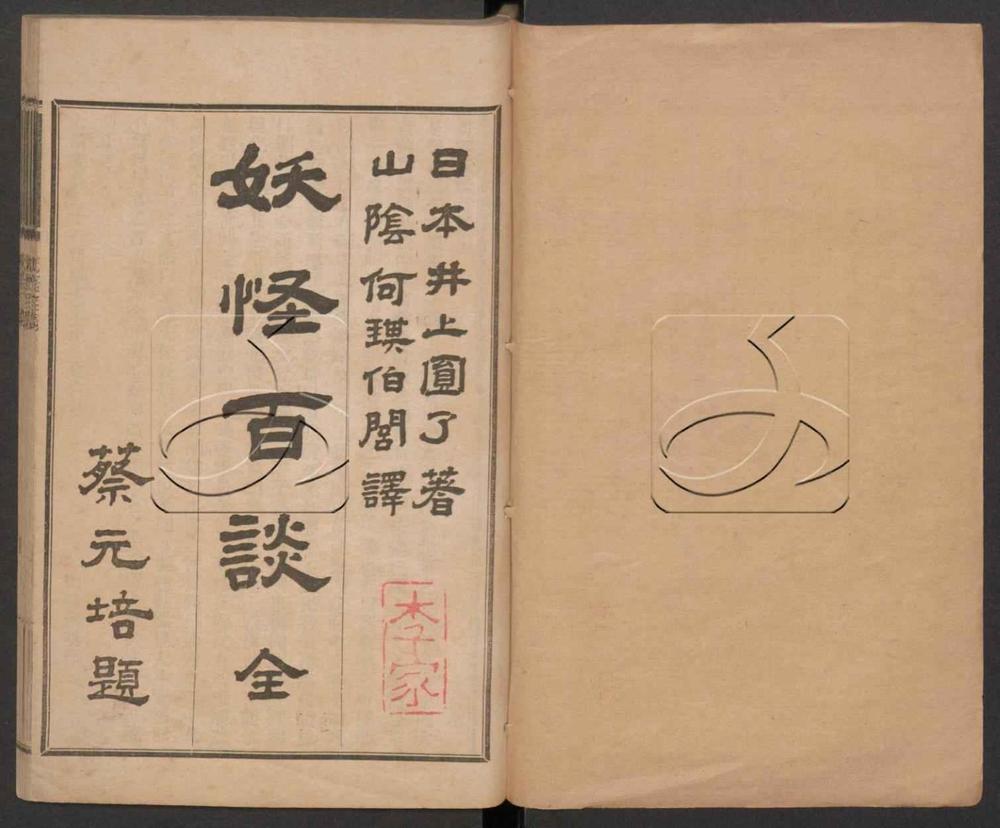 日本井上圓了著
山陰何琪伯閭譯
妖怪百談 全
蔡元培題
李家